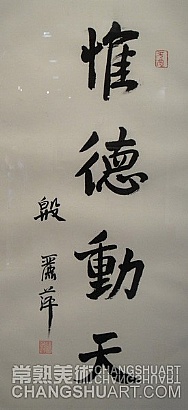 惟德動天
殷麗萍
常熟美術 CHANGSHUART
CHANGSHUART.COM